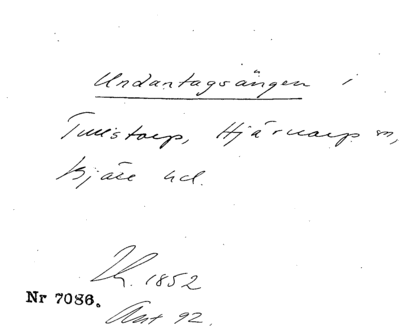 Undantagsängen i
Tullstorp, Hjärnarp sn,
Bjäre hd.
1852
Nr 7086.
Ant 92.